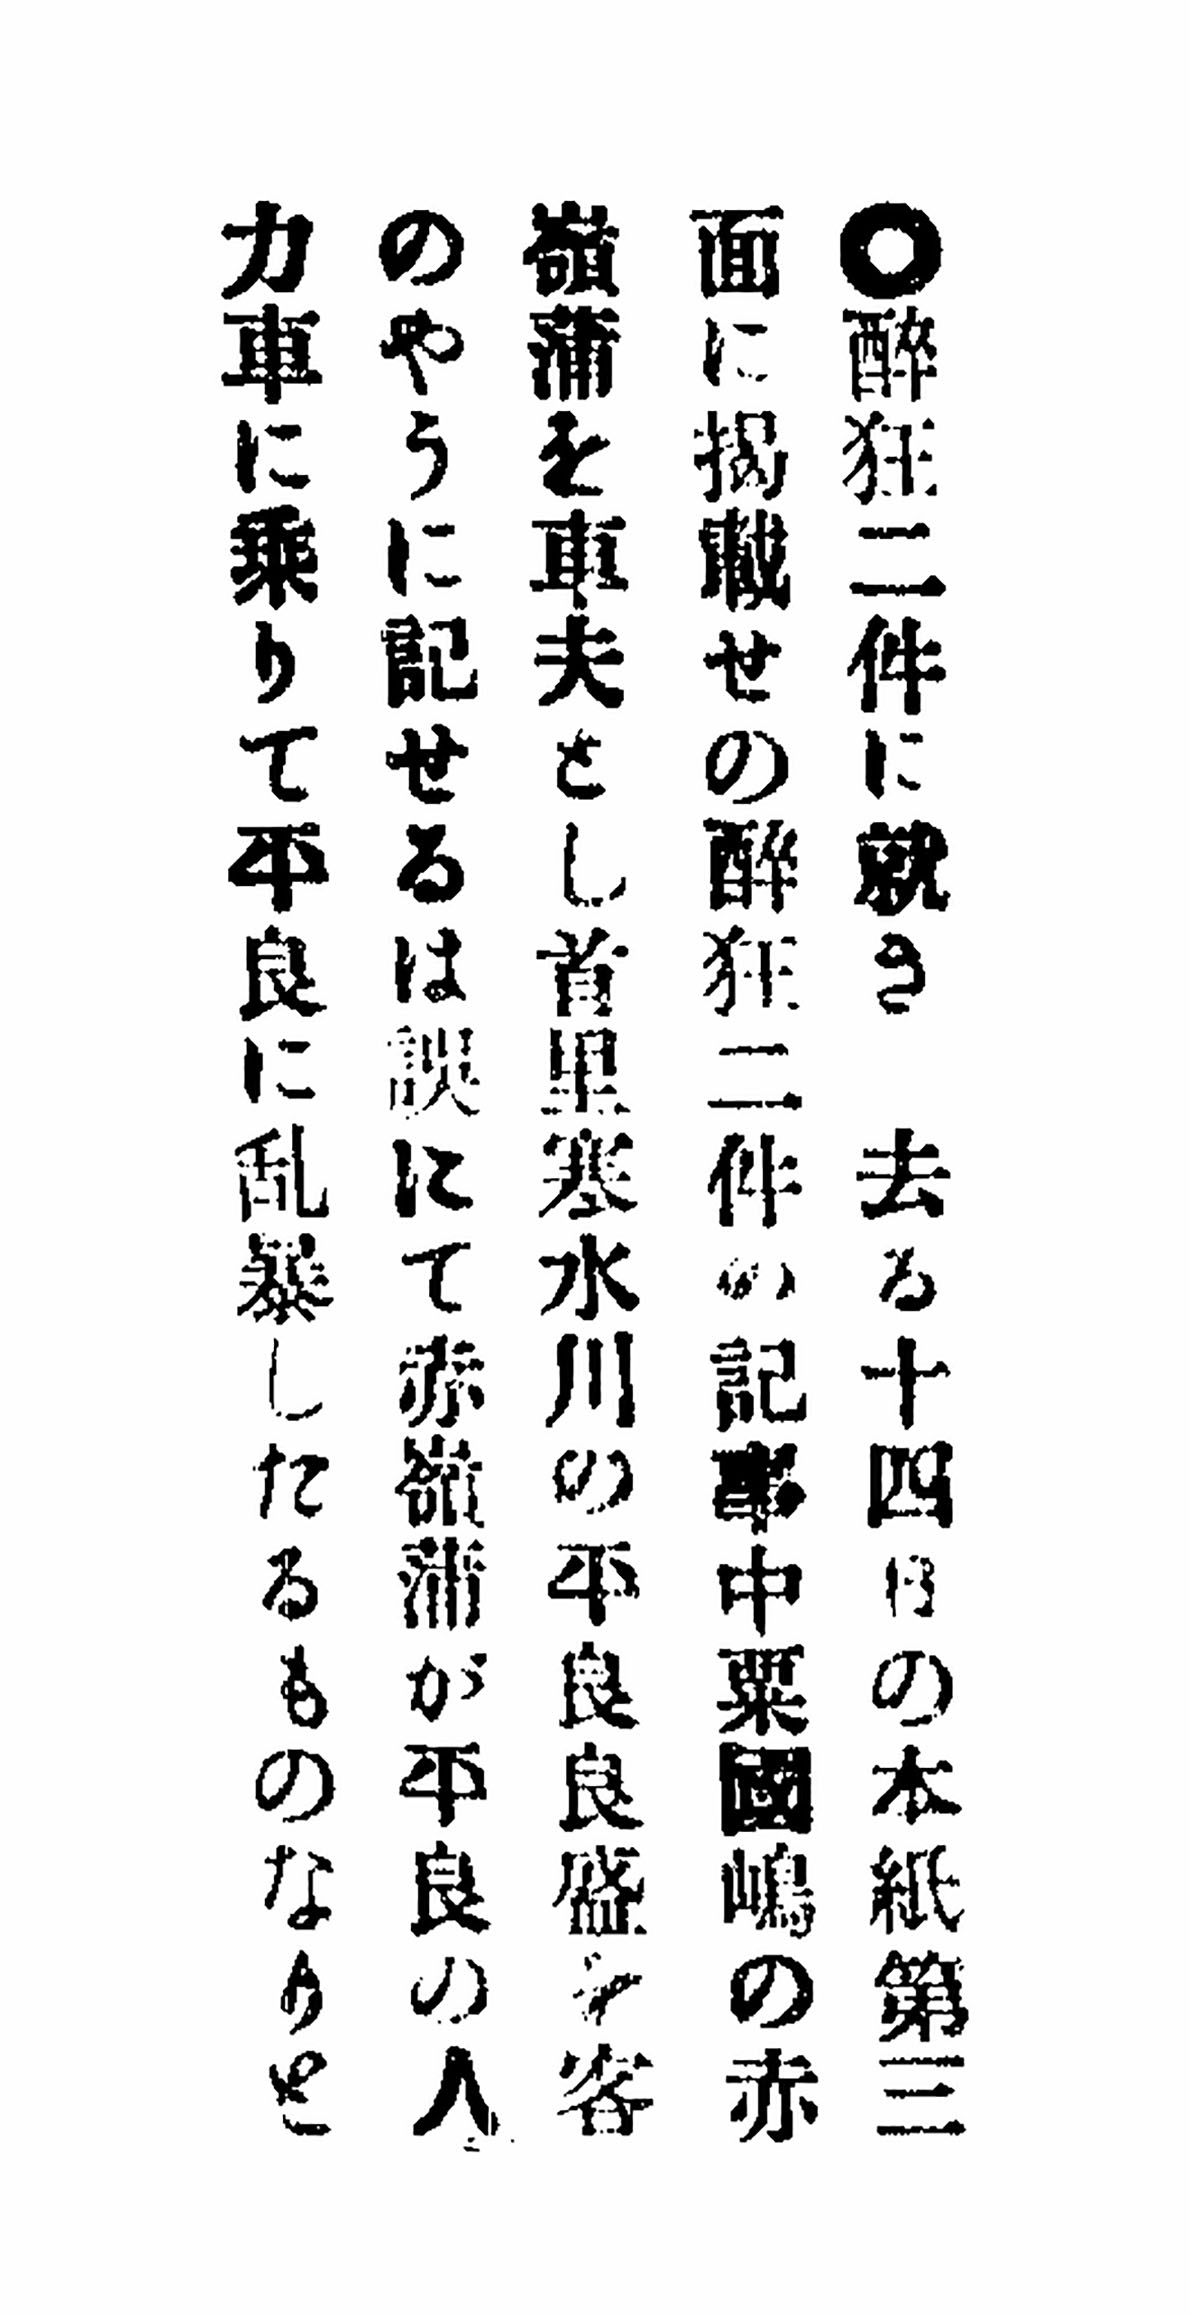 ○醉狂二件に就き　去る十四日の本紙第三
面に掲載せの醉狂二件の記事中粟國嶋の赤
嶺蒲を車夫とし首里寒水川の平良良盛を客
のやうに記せるは誤にて赤嶺蒲が平良の人
力車に乘りて平良に乱暴したるものなりと